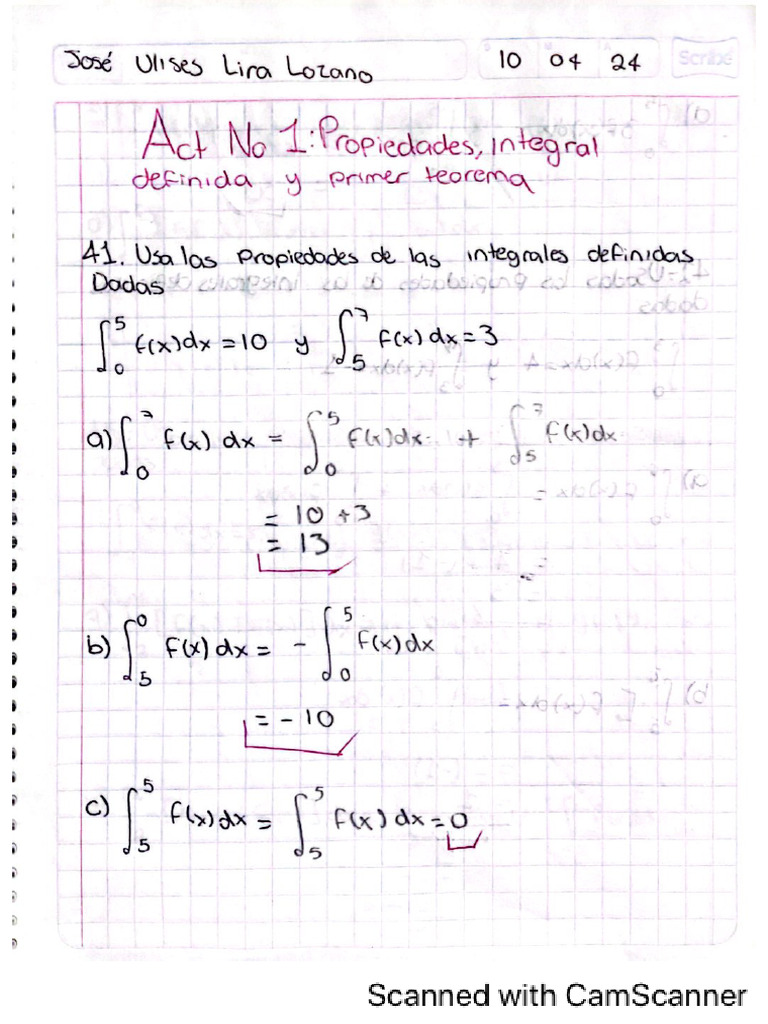 José Ulises Lira Lozano 10 04 24 Scribe
Act No 1: Propiedades, integral
definida y primer teorema
41. Usa las Propiedades de las integrales definidas
Dadas
∫₀⁵ f(x)dx = 10 y ∫₅⁷ f(x) dx = 3
a) ∫₀⁷ f(x) dx = ∫₀⁵ f(x)dx + ∫₅⁷ f(x)dx
= 10 + 3
= 13
b) ∫₅⁰ f(x) dx = - ∫₀⁵ f(x) dx
= - 10
c) ∫₅⁵ f(x) dx = ∫₅⁵ f(x) dx = 0
Scanned with CamScanner